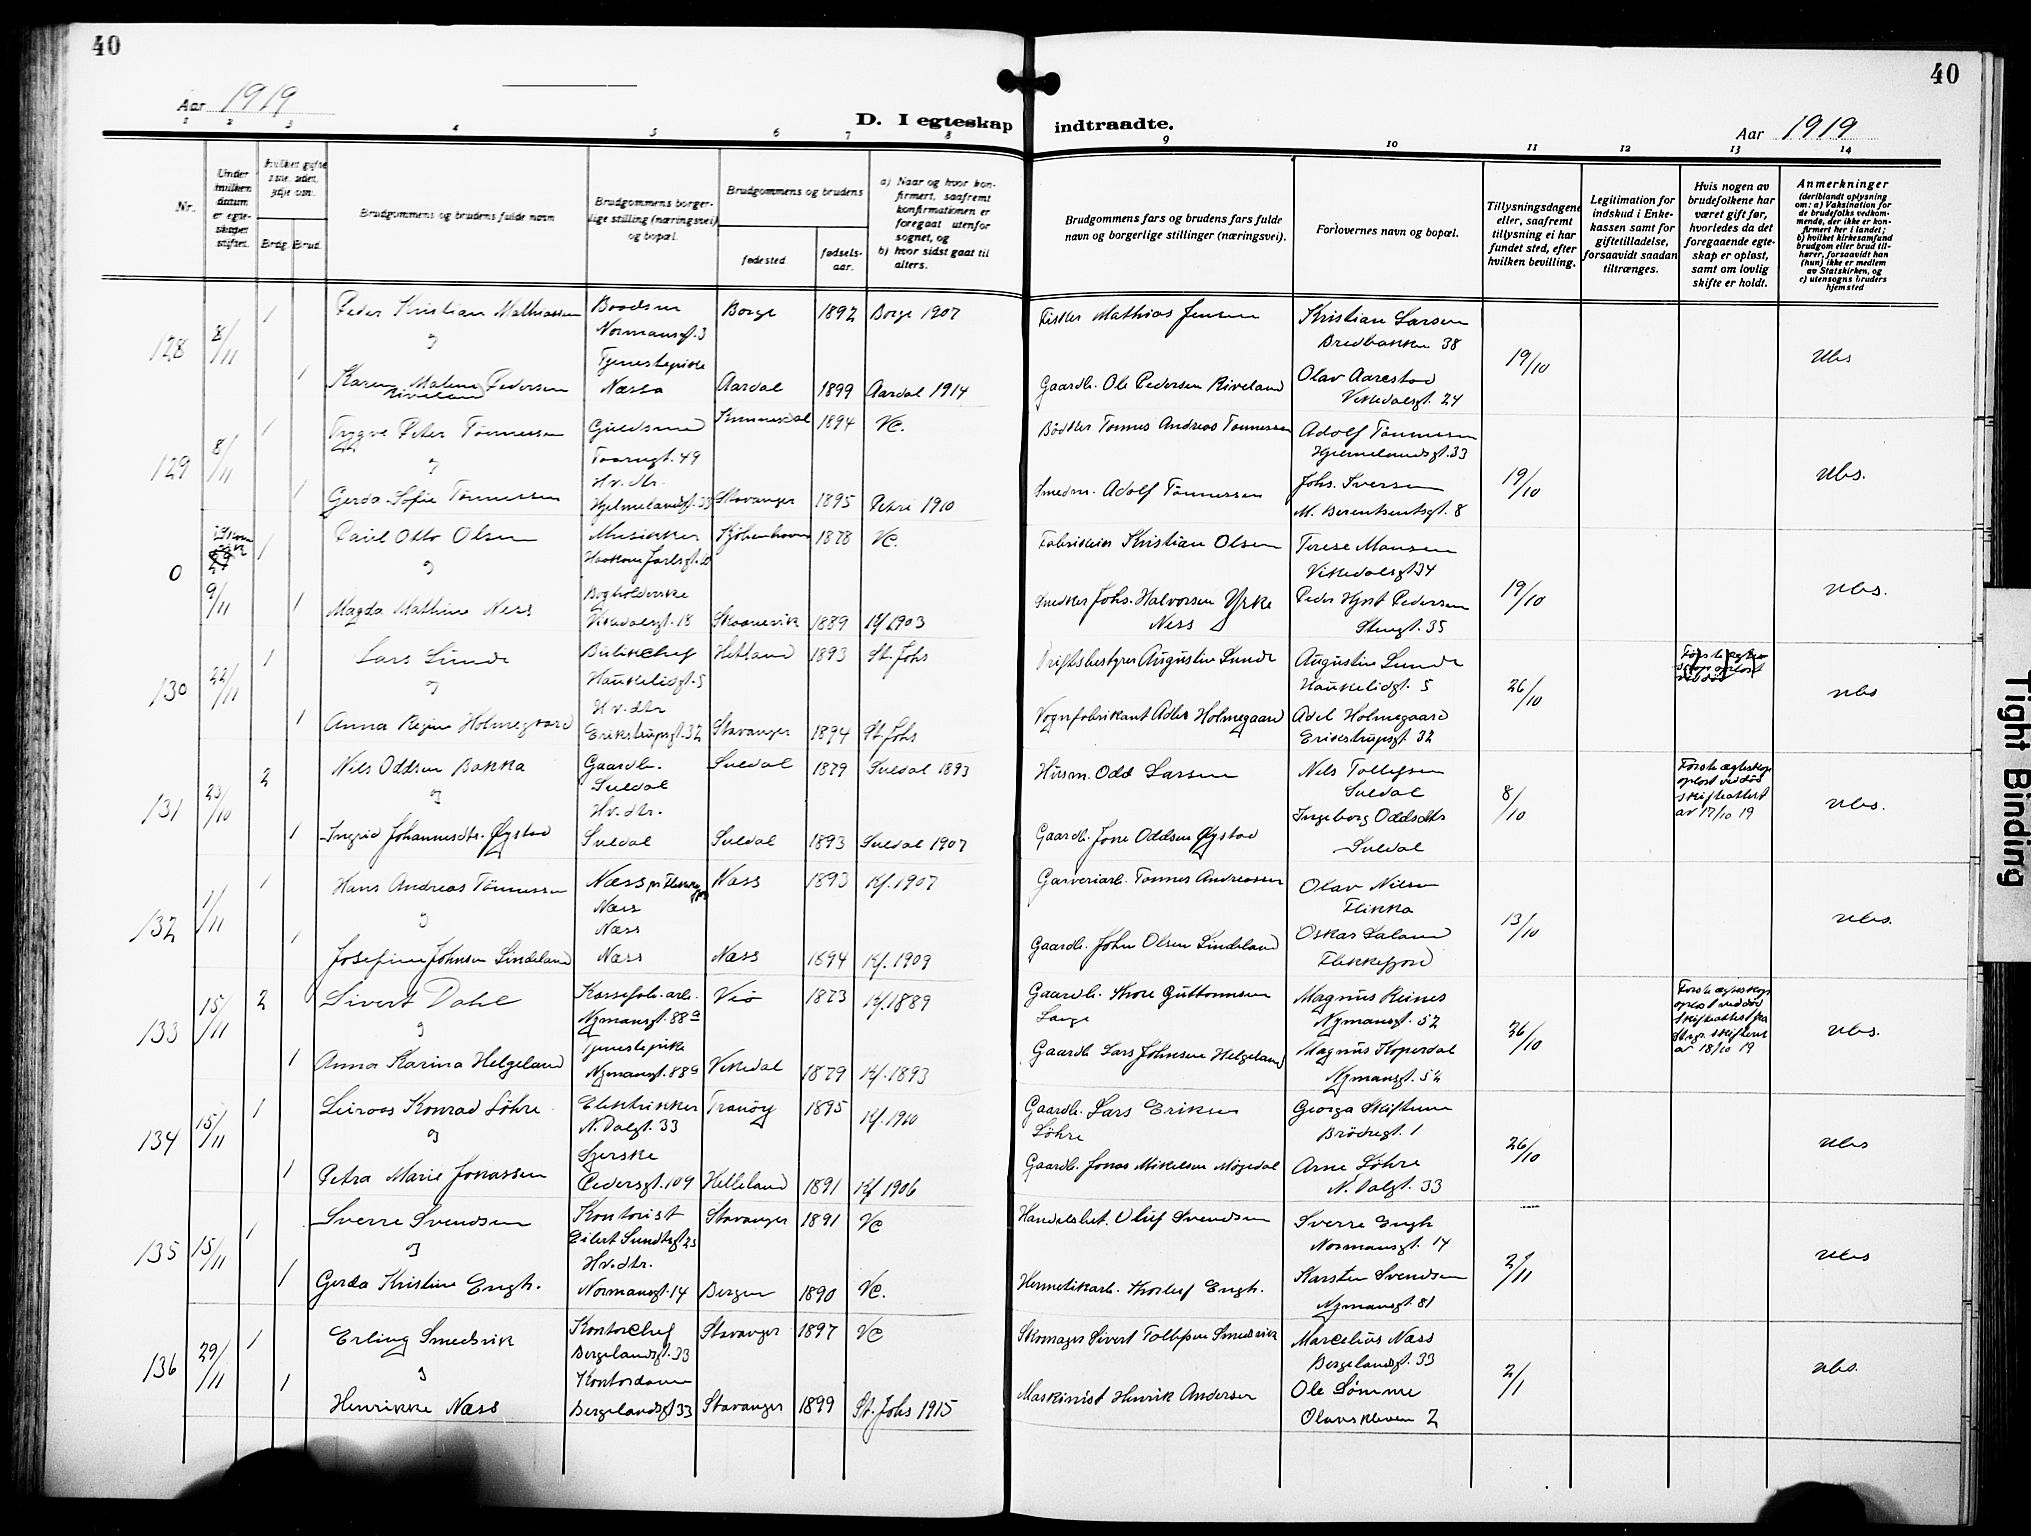 40
40
Aar 1919
D. I egteskap indtraadte.
Aar 1919
1 2 3 4 5 6 7 8 9 10 11 12 13 14
Nr.
Under hvilken datum er egteskapet stiftet.
Brdg. Brud.
Brudgommens og brudens fulde navn
Brudgommens borgerlige stilling (næringsvei) og bopæl.
Brudgommens og brudens
fødested. fødselsaar.
a) Naar og hvor konfirmert, saafremt konfirmationen er foregaat utenfor sognet, og
b) hvor sidst gaat til alters.
Brudgommens fars og brudens fars fulde navn og borgerlige stillinger (næringsvei).
Forlovernes navn og bopæl.
Tillysningsdagene eller, saafremt tillysning ei har fundet sted, efter hvilken bevilling.
Legitimation for indskud i Enkekassen samt for giftetilladelse, forsaavidt saadan tiltrænges.
Hvis nogen av brudefolkene har været gift før, hvorledes da det foregaaende egteskap er opløst, samt om lovlig skifte er holdt.
Anmerkninger (deriblandt oplysning om: a) Vaksination for de brudefolks vedkommende, der ikke er konfirmert her i landet; b) hvilket kirkesamfund brudgom eller brud tilhører, forsaavidt han (hun) ikke er medlem av Statskirken, og c) utensogns bruders hjemsted
128 8/11 1 Peder Kristian Mathiassen Baadsm Normansgt. 3 Borge 1892 Borge 1907 Fisker Mathias Jensen Kristian Larsen Bredbakken 38 19/10 Ubs
og
1 Karen Malene Pedersen Riveland Tjenestepike Næsta Aardal 1899 Aardal 1914 Gaardb. Ole Pedersen Riveland Olav Aarestad Vikedalsgt. 24
129 8/11 1 Trygve Peter Tønnessen Guldsmed Taarngt. 49 1894 Vc. Bødker Tønnes Andreas Tønnessen Adolf Tønnessen Hjelmelandsgt. 33 19/10 Ubs.
og
1 Gerda Sofie Tønnessen Hv. dtr. Hjelmelandsgt. 33 Stavanger 1895 Petri 1910 Smedm. Adolf Tønnessen Johs. Iversen M. Berentsensgt. 8
0 9/11 1 Paul Otto Olsen Musikker Haakon Jarlsgt. Kjøbenhavn 1878 Vc. Fabrikeier Kristian Olsen Terese Monsen Vikedalsgt. 34 19/10 Ubs.
og
1 Magda Mathine Ness Bogholderske Vikedalsgt. 18 Skaanevik 1889 Kf 1903 Snedker Johs. Halvorsen Yrke Ness Peder Hjort Pedersen Stengt. 35
130 22/11 1 Lars Lunde Butikchef Haukeligt. 5 Hetland 1893 St. Johs Driftsbestyrer Augustin Lunde Augustin Lunde Haukelidgt. 5 26/10 Første egteskap opløst ved død Ubs
og
1 Anna Regine Holmegaard Hv. dtr Erikstrupsgt. 32 Stavanger 1894 St. Johs Vognfabrikant Adler Holmegaard Adel Holmegaard Erikstrupsgt 32
131 23/10 2 Nils Oddsen Bakka Gaardb. Suldal Suldal 1879 Suldal 1893 Husm. Odd Larsen Nils Tollefsen Suldal 8/10 Første ægteskap opløst ved død skifteattest av 17/10 19 Ubs.
og
1 Ingrid Johannesdtr. Øystad Hv. dtr. Suldal Suldal 1893 Suldal 1907 Gaardb. Jone Oddsen Øystad Ingeborg Oddsdtr Suldal
132 1/11 1 Hans Andreas Tønnessen Næss pr Flekkefj. Næss Næss 1893 Kf. 1907 Garveriarb. Tønnes Andreassen Olav Nilsen Flikka 13/10 Ubs.
og
1 Josefine Johnsen Lindeland Næss Næss Næss 1894 Kf. 1909 Gaardb. John Olsen Lindeland Oskar Saland Flekkefjord
133 15/11 2 Sivert Dahl Kassefab. arb. Nymansgt. 88a Veø 1873 Kf. 1889 Gaardb. Thore Guttormsen Lange Magnus Reines Nymansgt. 52 26/10 Første ægteskap opløst ved død skifteattest fra skifterett av 18/10 19 Ubs.
og
1 Anna Karina Helgeland Tjenestepike Nymansgt. 88a Vikedal 1879 Kf. 1893 Gaardb Lars Johnsen Helgeland Magnus Koperdal Nymansgt. 52
134 15/11 1 Leiros Konrad Løhre Elektrikker N. Dalgt. 33 Tranøy 1895 Kf. 1910 Gaardb. Lars Eriksen Løhre Georga Skiftun Brødregt. 1 26/10 Ubs
og
1 Petra Marie Jonassen Syerske Pedersgt. 109 Helleland 1891 Kf 1906 Gaardb. Jonas Mikelsen Møgedal Arne Løhre N. Dalgt. 33
135 15/11 1 Sverre Svendsen Kontorist Eilert Sundtsgt 25 Stavanger 1891 Vc Handelsbet. Oluf Svendsen Sverre Engh Normansgt. 14 2/11 Ubs
og
1 Gerda Kristine Engh. Hv. dtr. Normansgt. 14 Bergen 1890 Vc. Hermetikarb. Thorleif Engh. Karsten Svendsen Nymansgt. 81
136 29/11 1 Erling Smedsvik Kontorchef Bergelandsgt. 33 Stavanger 1897 Vc Skomager Sivert Tollefsen Smedsvik Marcelius Næss Bergelandsgt. 33 2/1 Ubs.
og
1 Henrikke Næss Kontordame Bergelandsgt 33 Stavanger 1899 St. Johs 1915 Maskinist Henrik Andersen Ole Sømme Olavskleven 2
Tight Binding